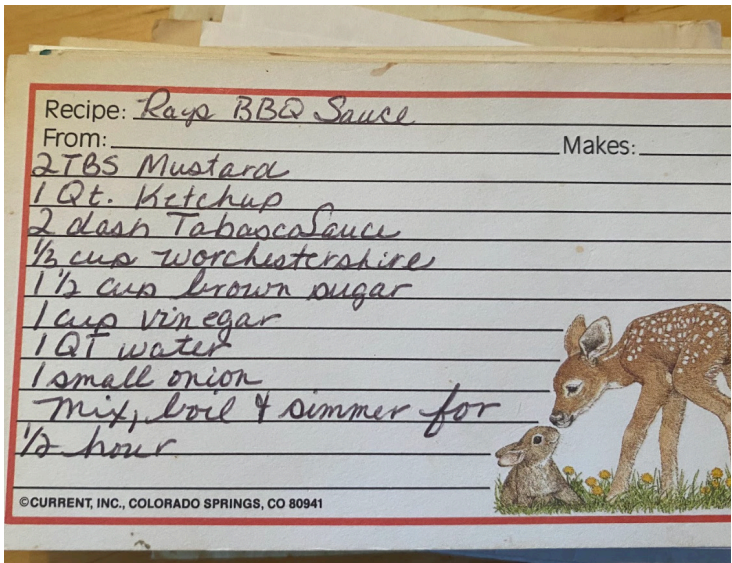 Recipe: Rays BBQ Sauce
From: Makes:
2 TBS Mustard
1 Qt. Ketchup
2 dash Tabasco Sauce
1/2 cup worchestershire
1 1/2 cup brown sugar
1 cup vinegar
1 QT water
1 small onion
Mix, boil & simmer for
1/2 hour
©CURRENT, INC., COLORADO SPRINGS, CO 80941